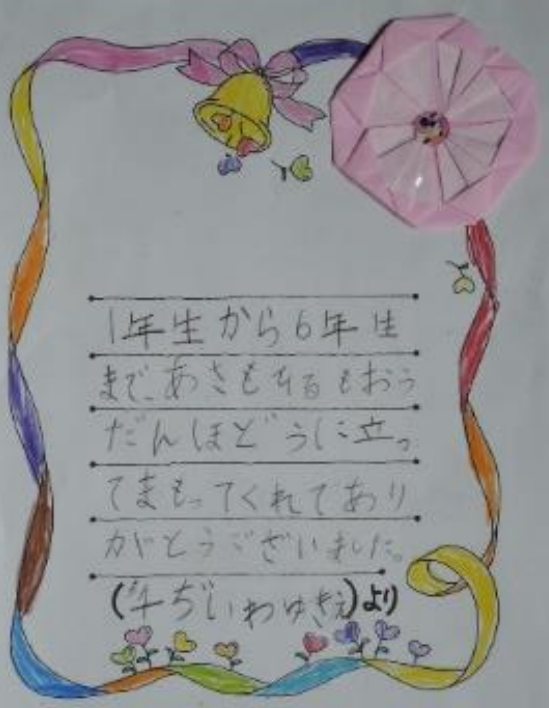 1年生から6年生
まで、あさもよるもおう
だんほどうに立っ
てまもってくれてあり
がとうございました。
いわゆきえ)より